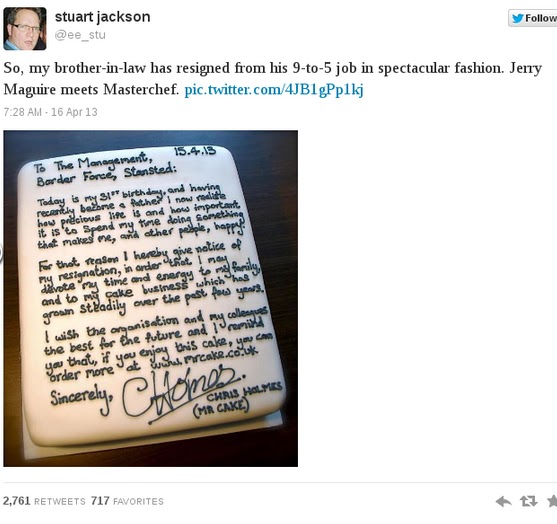 stuart jackson
@ee_stu
Follow
So, my brother-in-law has resigned from his 9-to-5 job in spectacular fashion. Jerry
Maguire meets Masterchef. pic.twitter.com/4JB1gPp1kj
7:28 AM - 16 Apr 13
15.4.13
To The Management,
Border Force, Stansted:
Today is my 31ST birthday, and having
recently become a father I now realise
how precious life is and how important
it is to spend my time doing something
that makes me, and other people, happy.
For that reason I hereby give notice of
my resignation, in order that I may
devote my time and energy to my family,
and to my cake business which has
grown steadily over the past few years.
I wish the organisation and my colleagues
the best for the future and I remind
you that, if you enjoy this cake, you can
order more at www.mrcake.co.uk
Sincerely, CHolmes.
CHRIS HOLMES
(MR CAKE)
2,761 RETWEETS 717 FAVORITES